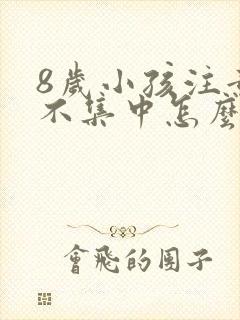 8歲小孩注
不集中怎麼
會飛的團子